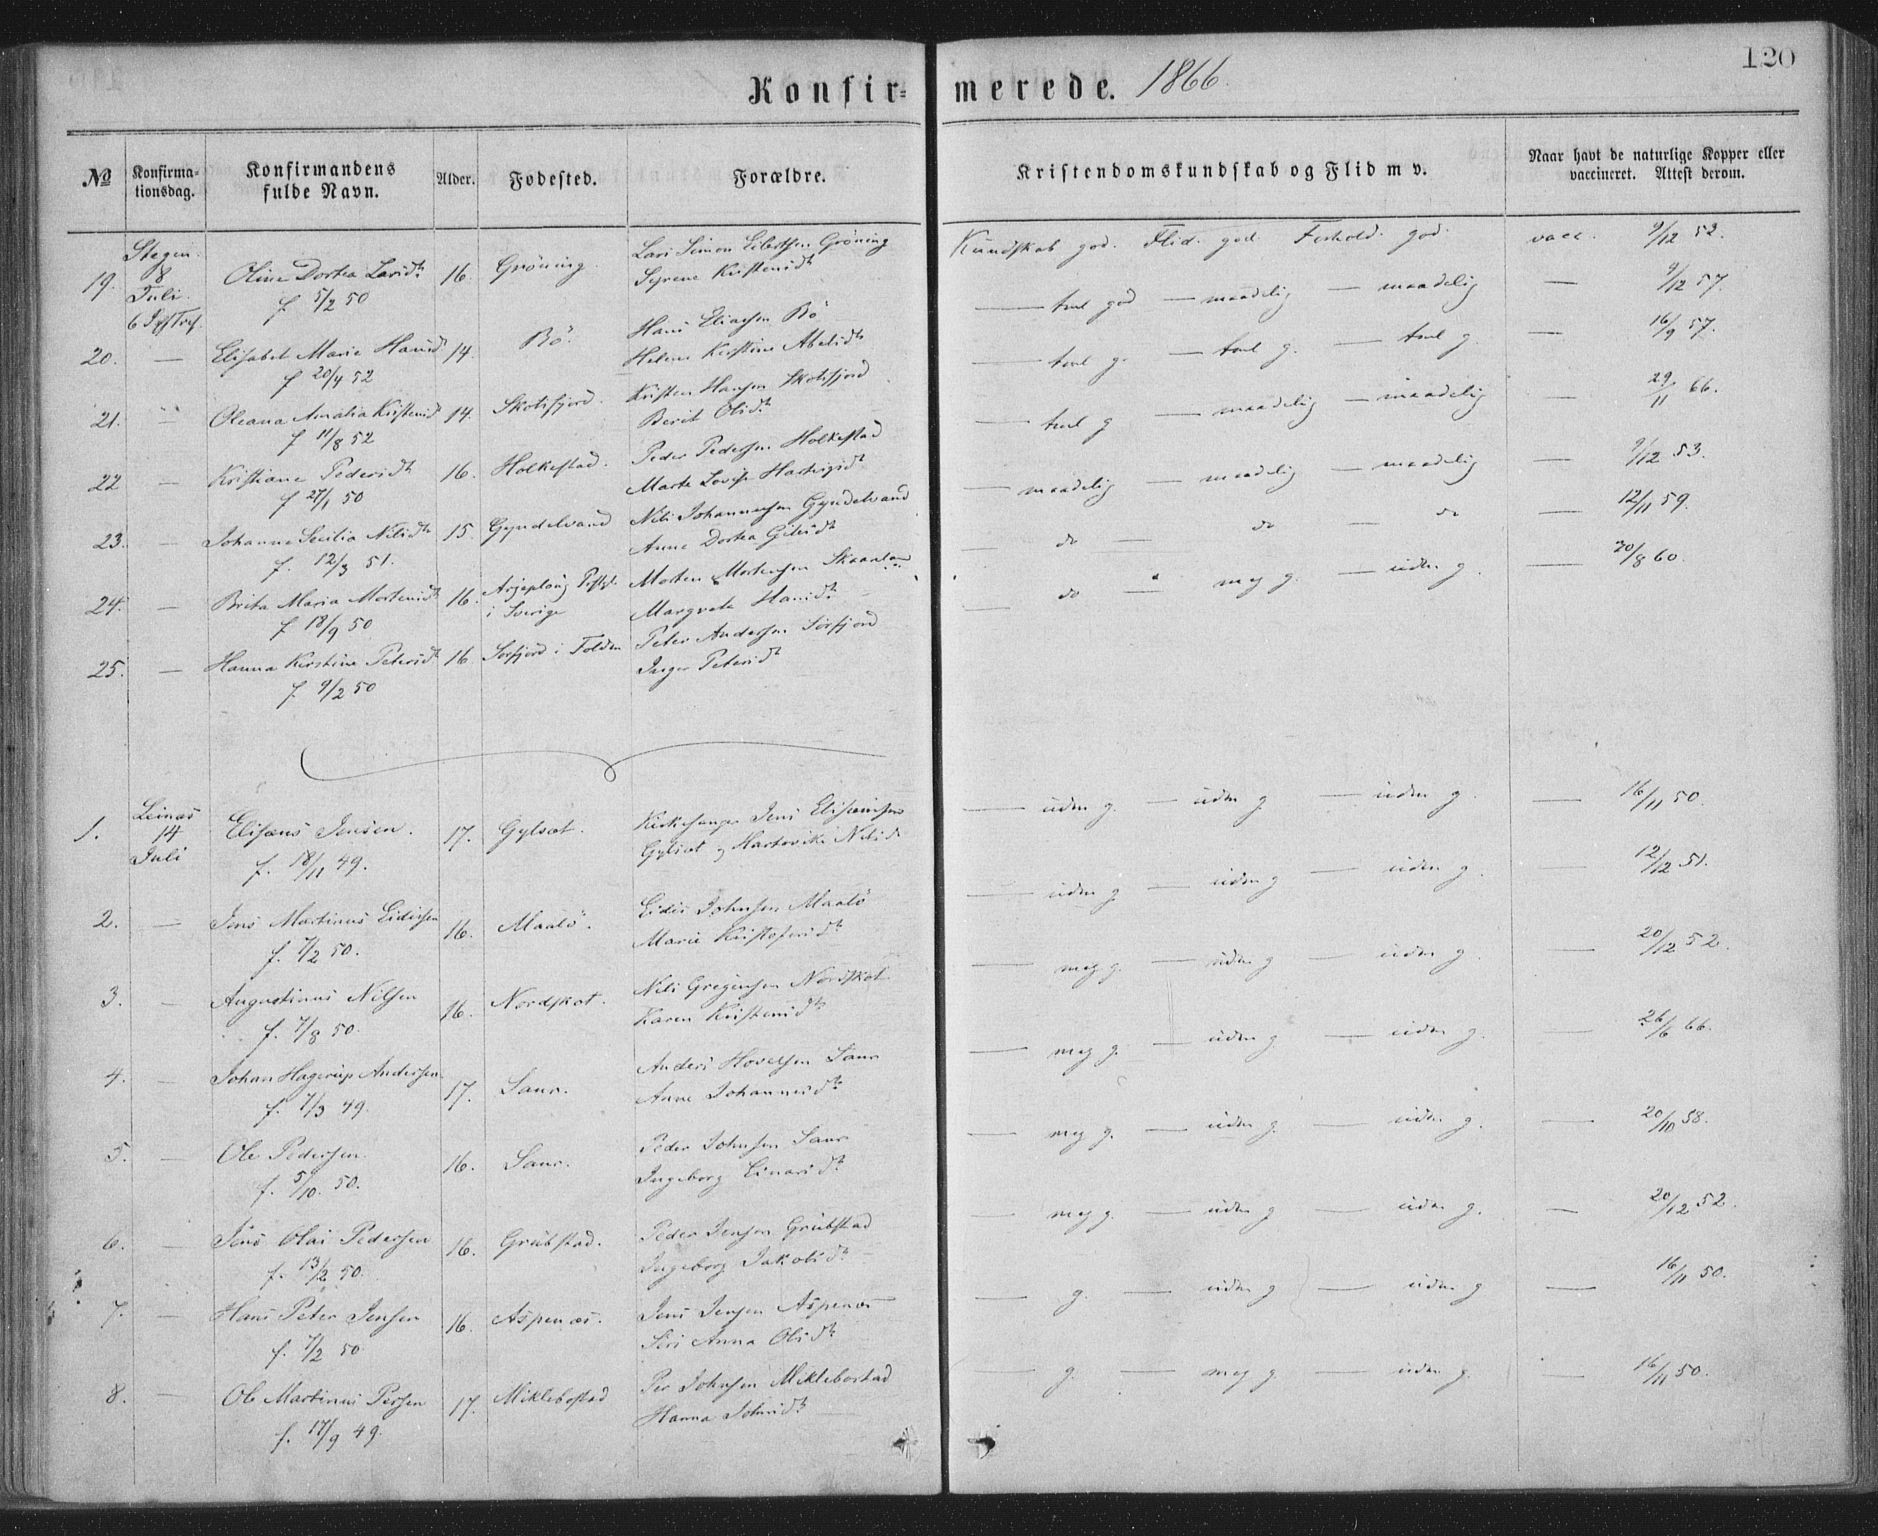 120
Konfirmerede. 1866.
№ Konfirmationsdag. Konfirmandens fulde Navn. Alder. Fodested. Forældre. Kristendomskundskab og Flid m v. Naar havt de naturlige Kopper eller vaccineret. Attest derom.
19. Stegen 8 Juli 6 S. e. Tref. Oline Dortea Larsdtr 16. Gröning. Lars Simon Eilertsen Gröning Kundskab god. Flid. god. Forhold. god. vacc. 9/12 52.
f. 5/2 50 Syrene Kristensdtr
20. — Elisabet Marie Hansdtr 14. Bö. Hans Eliasen Bö — tml god — maadelig — maadelig — 9/12 57.
f 20/4 52 Helene Kirstine Abelsdtr
21. — Oleana Amalia Kristensdtr 14. Skotsfjord. Kristen Hansen Skotsfjord — tml g. — tml g. — tml g. — 16/9 57.
f 11/8 52 Berit Olsdtr
22 — Kristiane Pedersdtr 16. Holkestad. Peder Pedersen Holkestad — tml g — maadelig — maadelig — 29/11 66.
f 27/1 50 Marte Lovise Hartvigsdtr
23. — Johanne Secilia Nilsdtr 15. Gyndelvand Nils Johannesen Gyndelvand — maadelig — maadelig — maadelig — 9/12 53.
f. 12/3 51. Anne Dortea
24. — Brita Maria Mortensdtr 16. Arjeploug i Sverige Morten Mortensen Skaanland — do — do — do — 12/11 59.
f 18/9 50 Margrete Hansdtr
25. — Hanna Kirstine Petersdtr 16 Sörfjord i Folden Peter Andersen Sörfjord — do — meg g. — uden g. — 20/8 60.
f. 9/2 50 Inger Petersdtr
1. Leines 14 Juli Elisæus Jensen. 17. Gylset. Kirkesanger Jens Elisæussen — uden g. — uden g — uden g. — 16/11 50.
f. 18/11 49. Gylset og Hartvike Nilsdtr
2. — Jens Martinus Eidissen 16. Maalö. Eidis Johnsen Maalö — uden g — uden g — uden g. — 12/12 51.
f. 7/2 50. Marie Kristofersdtr
3. — Augustinus Nilsen 16. Nordskot. Nils Gregersen Nordskot — meg g. — uden g — uden g. — 20/12 52.
f. 7/8 50. Karen Kristensdtr
4. — Johan Hagerup Andersen 17. Saur. Anders Hovelsen Saur — meg g. — uden g — uden g. — 26/6 66.
f. 7/3 49. Anne Johannesdtr
5. — Ole Pedersen. 16. Saur. Peder Johnsen Saur — meg g. — uden g. — uden g. — 20/10 58.
f. 5/10. 50. Ingeborg Einarsdtr
6. — Jens Olai Pedersen 16. Grübstad. Peder Jensen Grübstad — meg g. — uden g — uden g. — 20/12 52.
f. 13/2 50. Ingeborg Jakobsdtr
7. — Hans Peter Jensen 16. Aspenæs. Jens Jensen Aspenæs — g. — uden g — uden g — 16/11 50.
f. 7/2 50 Siri Anna Olsdtr
8. — Ole Martinus Persen 17. Miklebostad Per Johnsen Miklebostad — g. — meg g. — uden g. — 16/11 50.
f. 17/9 49. Hanna Johnsdtr